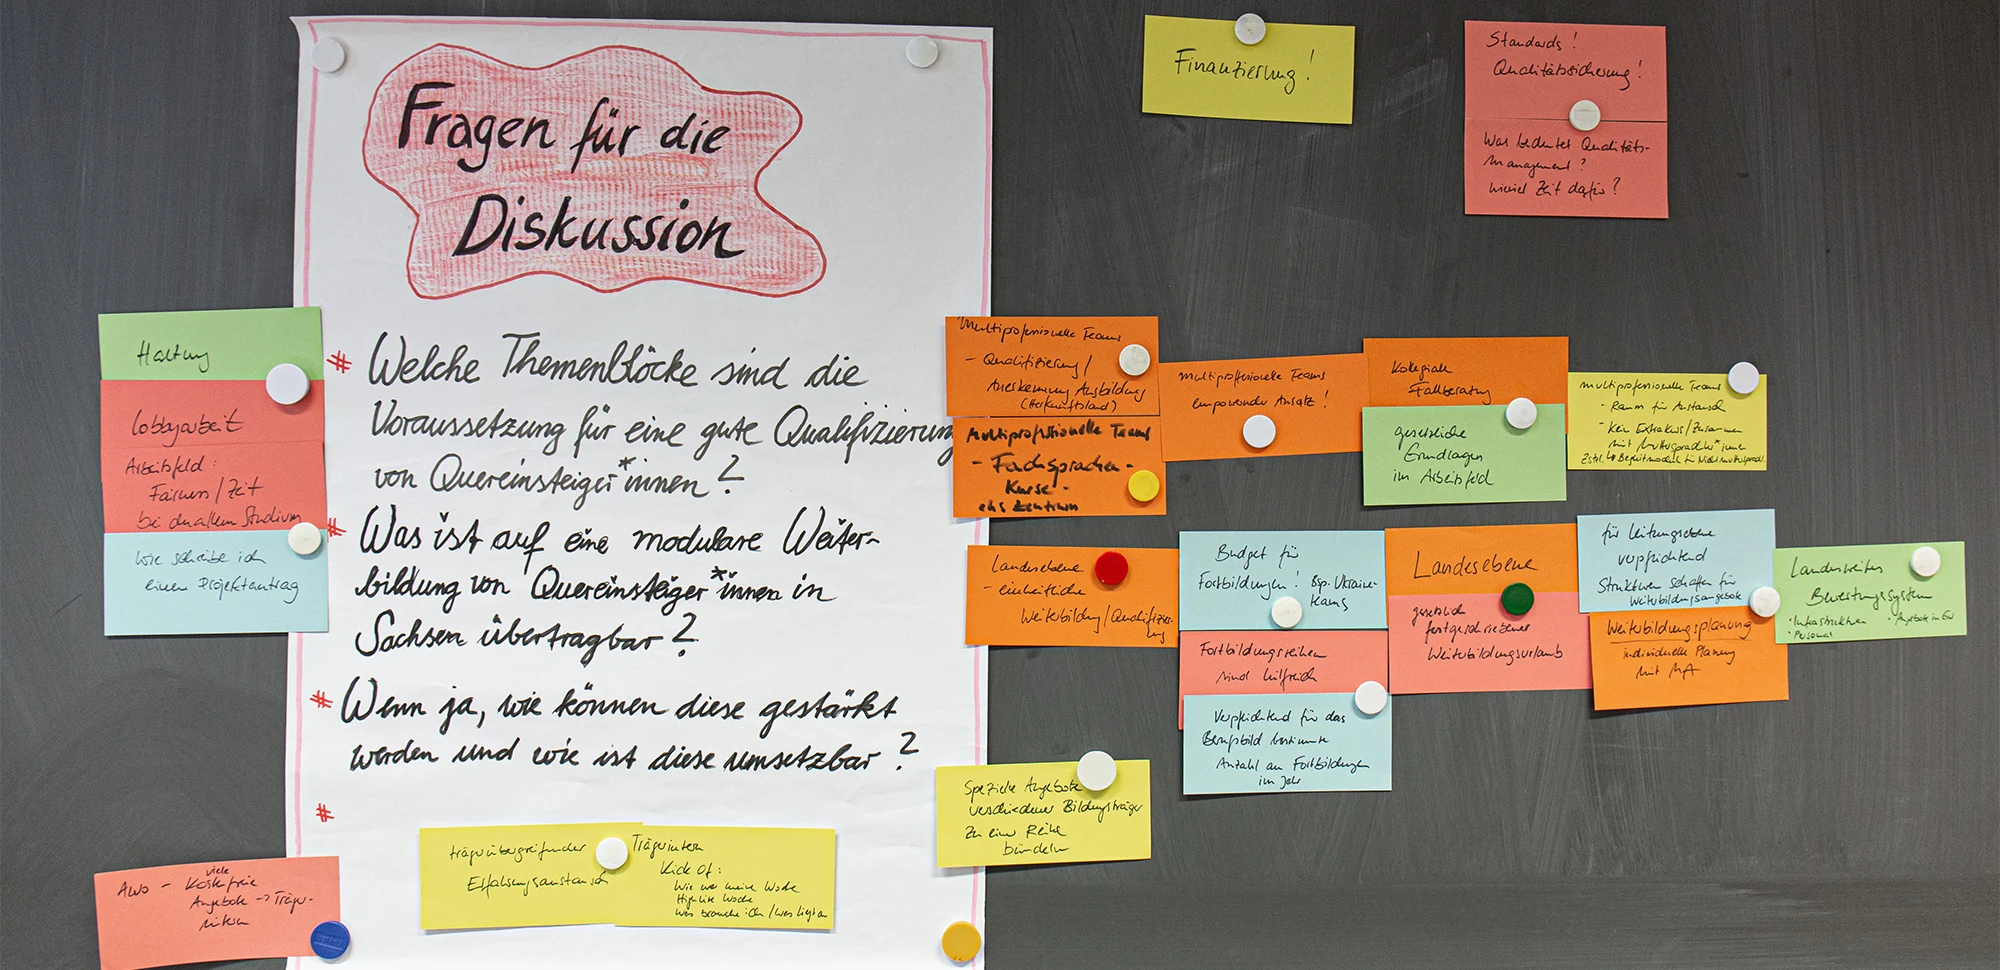 Fragen für die
Diskussion
# Welche Themenblöcke sind die
Voraussetzung für eine gute Qualifizierung
von Quereinsteiger*innen?
# Was ist auf eine modulare Weiter-
bildung von Quereinsteiger*innen in
Sachsen übertragbar?
# Wenn ja, wie können diese gestärkt
werden und wie ist diese umsetzbar?
#
Haltung
Lobbyarbeit
Arbeitsfeld:
Fairness / Zeit
bei dualem Studium
Wie schreibe ich
einen Projektantrag
AWO - viele
Kostenfreie
Angebote -> Träger-
intern
trägerübergreifender
Erfahrungsaustausch
Trägerintern
Kick Of:
Wie war meine Woche
Highlite Woche
Was brauche ich / was liegt an
Finanzierung!
Standards!
Qualitätssicherung!
Was bedeutet Qualitäts-
management?
wieviel Zeit dafür?
multiprofessionelle Teams
- Qualifizierung /
Anerkennung Ausbildung
(Herkunftsland)
Multiprofessionelle Teams
- Fachsprachen-
Kurse -
multiprofessionelle Teams
empowernder Ansatz!
Kollegiale
Fallberatung
gesetzliche
Grundlagen
im Arbeitsfeld
multiprofessionelle Teams
- Raum für Austausch
- Kein Extrakurs / Zusammen
mit Muttersprachler*innen
Landesebene
- einheitliche
Weiterbildung / Qualifizier-
ung
Budget für
Fortbildungen! Bsp. Ukraine-
teams
Fortbildungsreihen
sind hilfreich
Verpflichtend für das
Berufsbild bestimmte
Anzahl an Fortbildungen
im Jahr
Landesebene
gesetzlich
festgeschriebener
Weiterbildungsurlaub
für Leitungsebene
verpflichtend
Strukturen schaffen für
Weiterbildungsangebote
Weiterbildungsplanung
individuelle Planung
mit MA
Landesweites
Bewertungssystem
• Infrastruktur
• Personal
Spezielle Angebote
verschiedener Bildungsträger
zu einer Reihe
bündeln